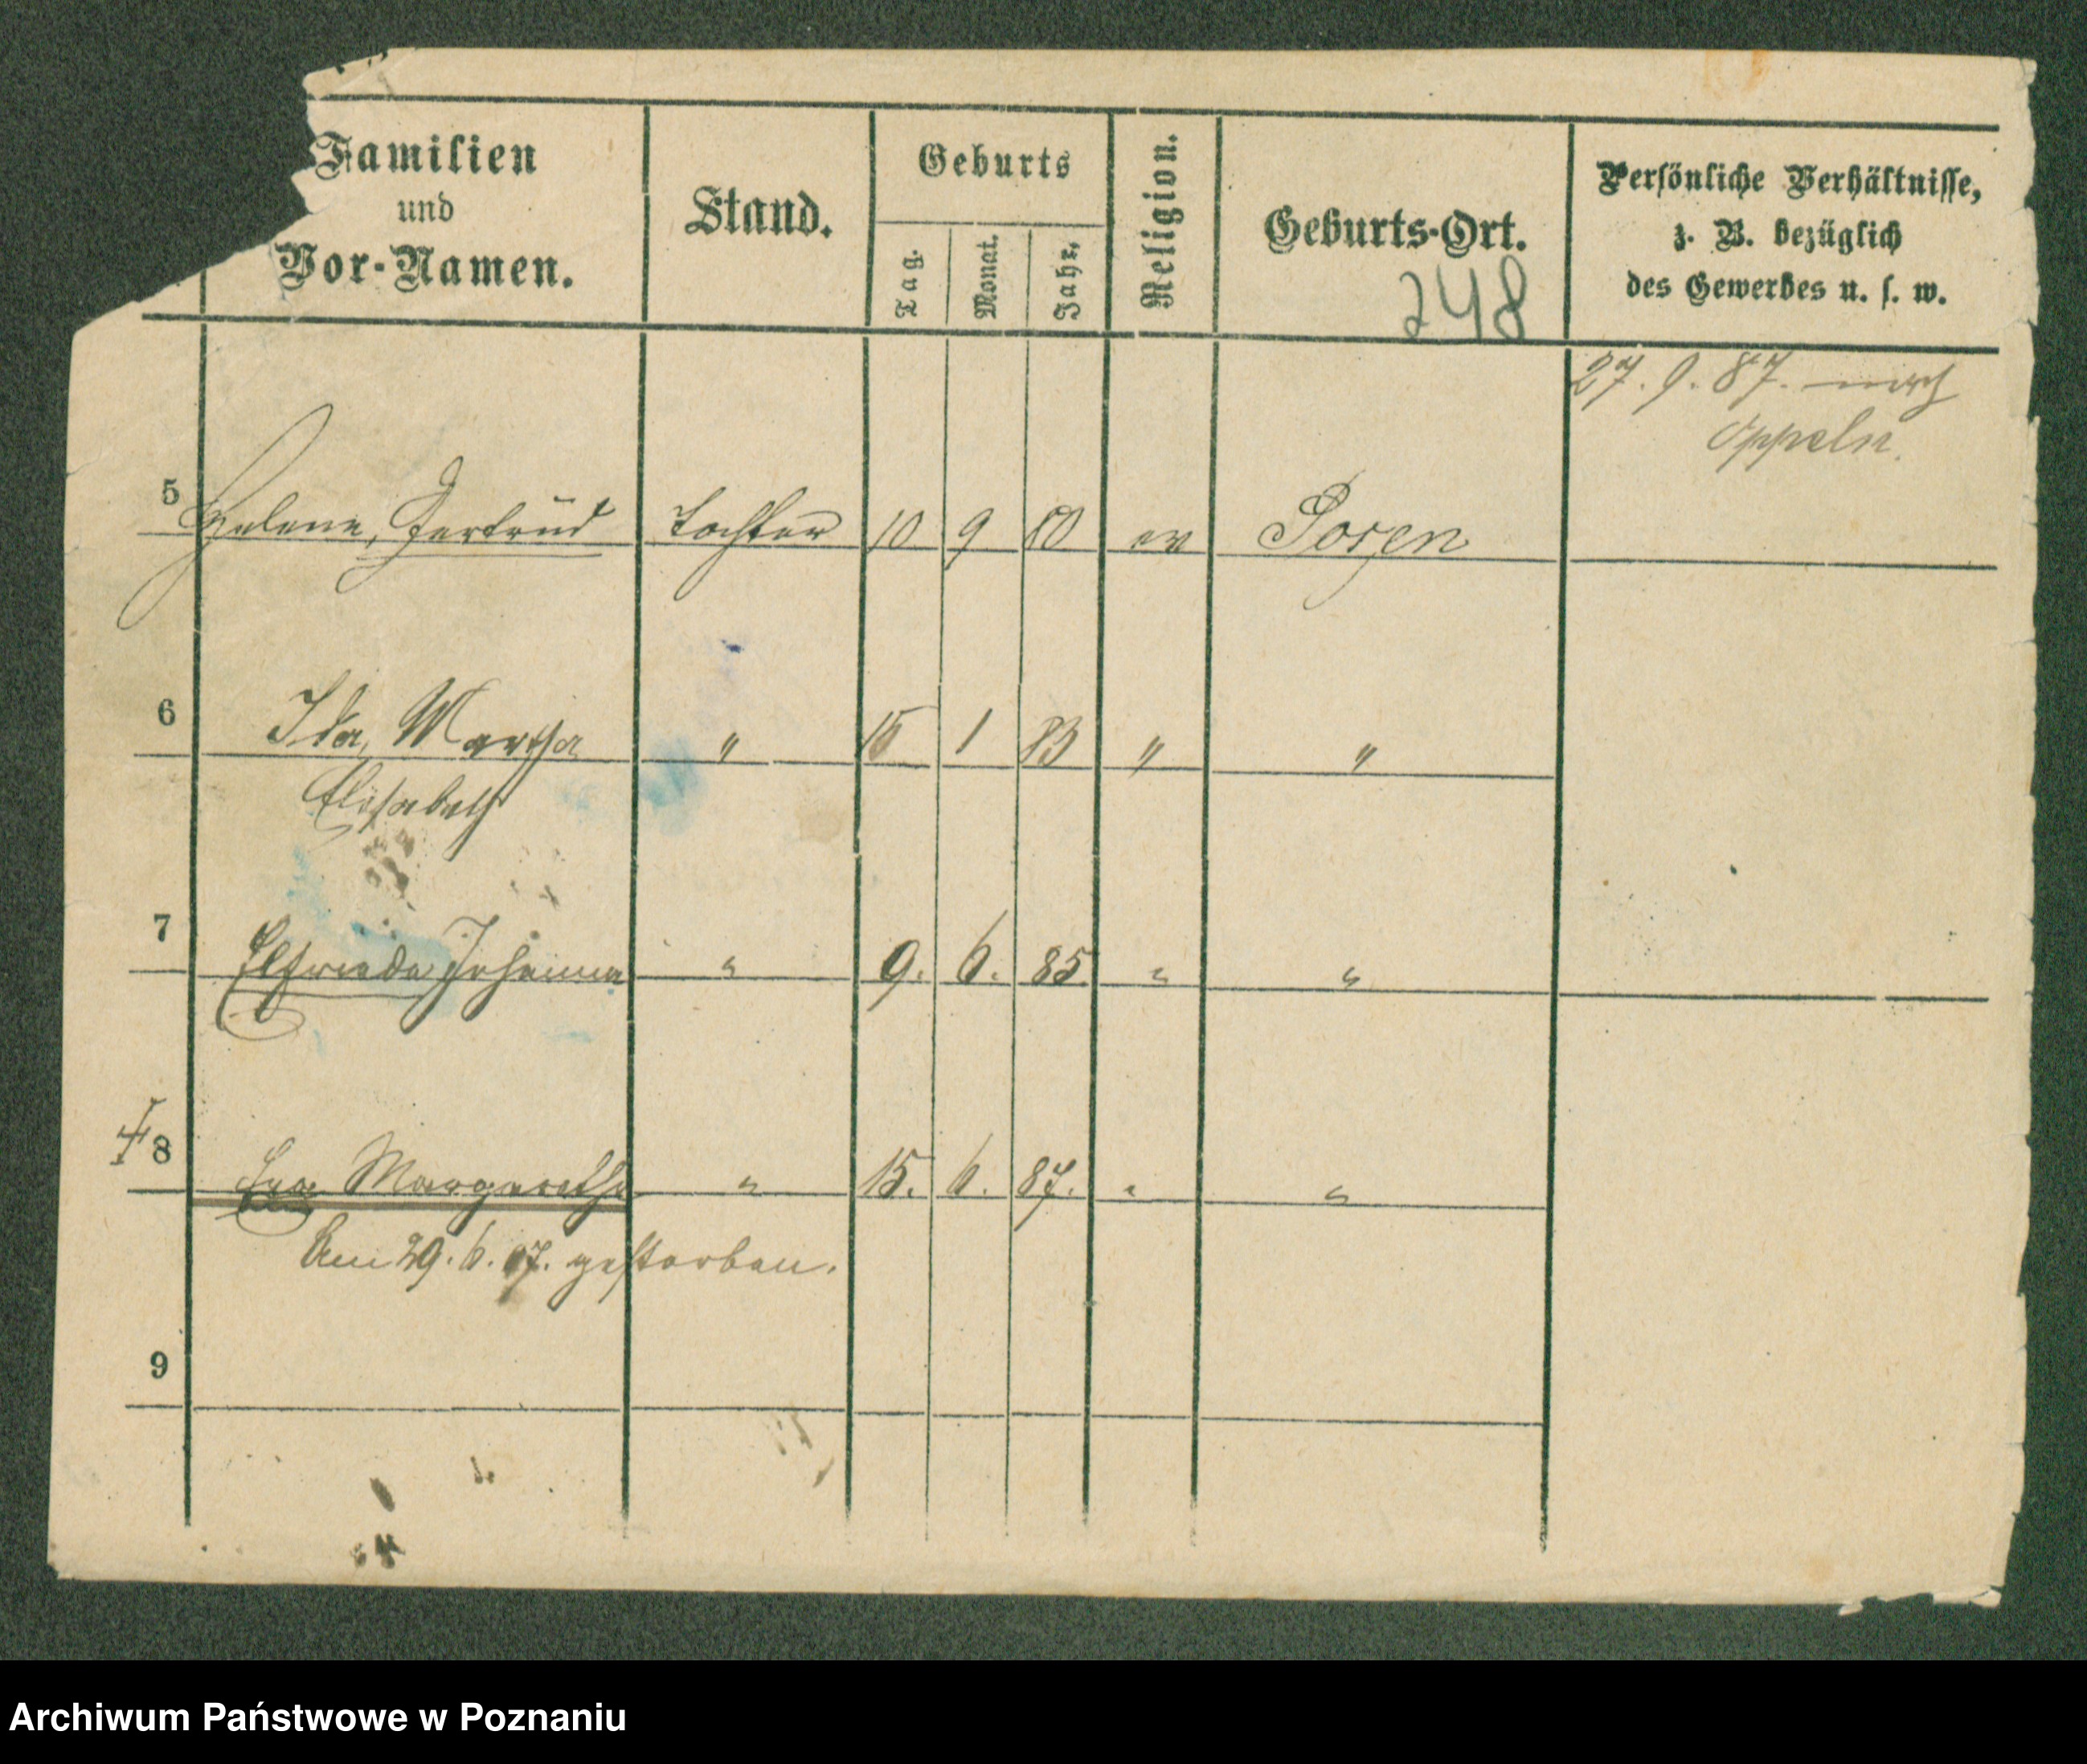 Familien
und
Vor-Namen.
Stand.
Geburts
Tag.
Monat.
Jahr.
Religion.
Geburts-Ort.
Persönliche Verhältnisse,
z. B. bezüglich
des Gewerbes u. s. w.
248
27. 9. 87. nach
Oppeln.
5 Helene, Gertrud Tochter 10 9 80 ev Posen
6 Ida, Martha " 15 1 83 " "
Elisabeth
7 Elfriede Johanna " 9. 6. 85. " "
8 Eva Margarethe " 15. 6. 87. " "
Am 29. 6. 87. gestorben.
9
Archiwum Państwowe w Poznaniu